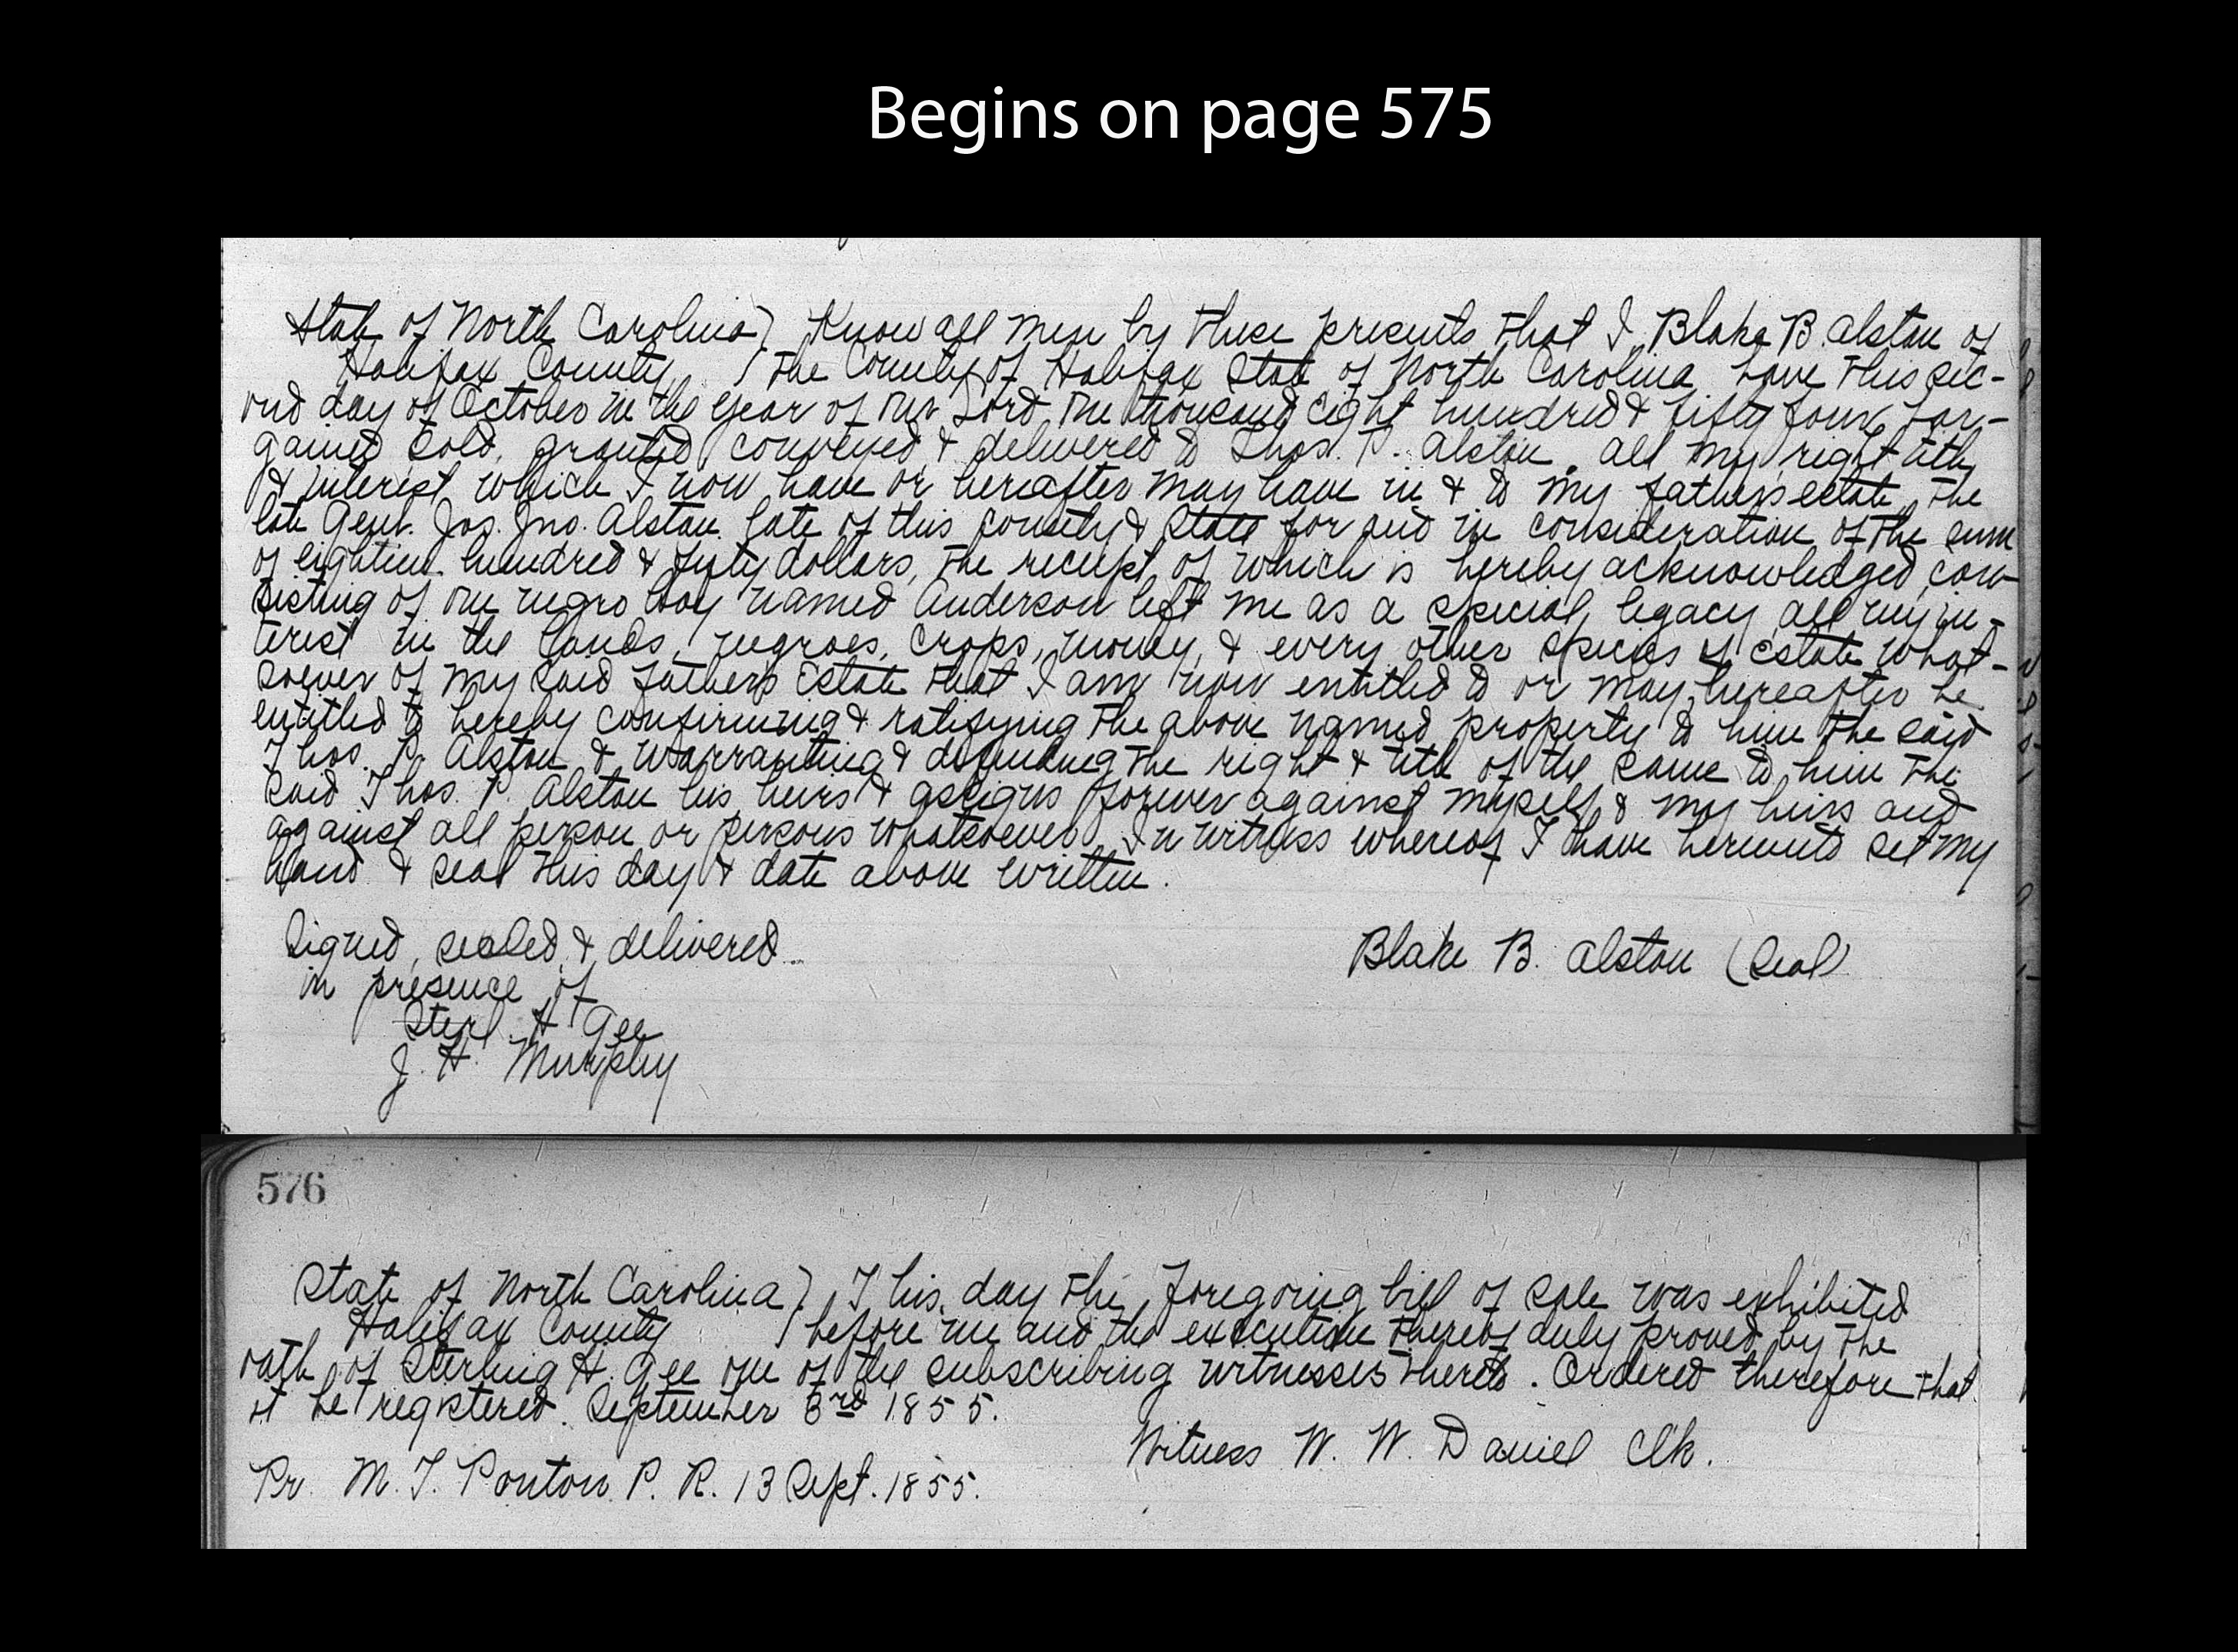 Begins on page 575
State of North Carolina) Know all men by these presents that I, Blake B. Alston of
Halifax County ) the County of Halifax State of North Carolina, have this sec-
ond day of October in the year of our Lord one thousand eight hundred & fifty four, bar-
gained, sold, granted, conveyed, & delivered to Thos. P. Alston, all my right title
& interest which I now have or hereafter may have in & to my father's estate, the
late Genl. Jos. Jno. Alston late of this county & state for and in consideration of the sum
of eighteen hundred & fifty dollars, the receipt of which is hereby acknowledged, con-
sisting of one negro boy named Anderson left me as a special legacy, all my in-
terest in the lands, negroes, crops, money, & every other species of Estate what-
soever of my said father's Estate that I am now entitled to or may hereafter be
entitled to hereby confirming & ratifying the above named property to him the said
Thos. P. Alston & warranting & defending the right & title of the same to him the
said Thos. P. Alston his heirs & assigns forever against myself & my heirs and
against all person or persons whatsoever. In witness whereof I have hereunto set my
hand & seal this day & date above written.
Signed, sealed, & delivered
in presence of
Blake B. Alston (Seal)
Sterl. H. Gee
J. H. Murphy
576
State of North Carolina) This day the foregoing bill of sale was exhibited
Halifax County ) before me and the execution thereof duly proved by the
oath of Sterling H. Gee one of the subscribing witnesses thereto. Ordered therefore that
it be registered. September 3rd 1855.
Witness W. W. Daniel Clk.
Pr. M. T. Ponton P. R. 13 Sept. 1855.